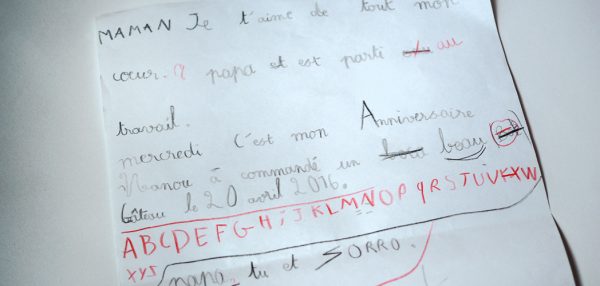 MAMAN Je t'aime de tout mon
cœur. papa et est parti au
travail.
mercredi C'est mon Anniversaire
Nanou à commandé un beau
Gâteau le 20 avril 2016.
ABCDEFGHiJKLMNOPqRSTUVXW
XYZ
papa, tu et SORRO.